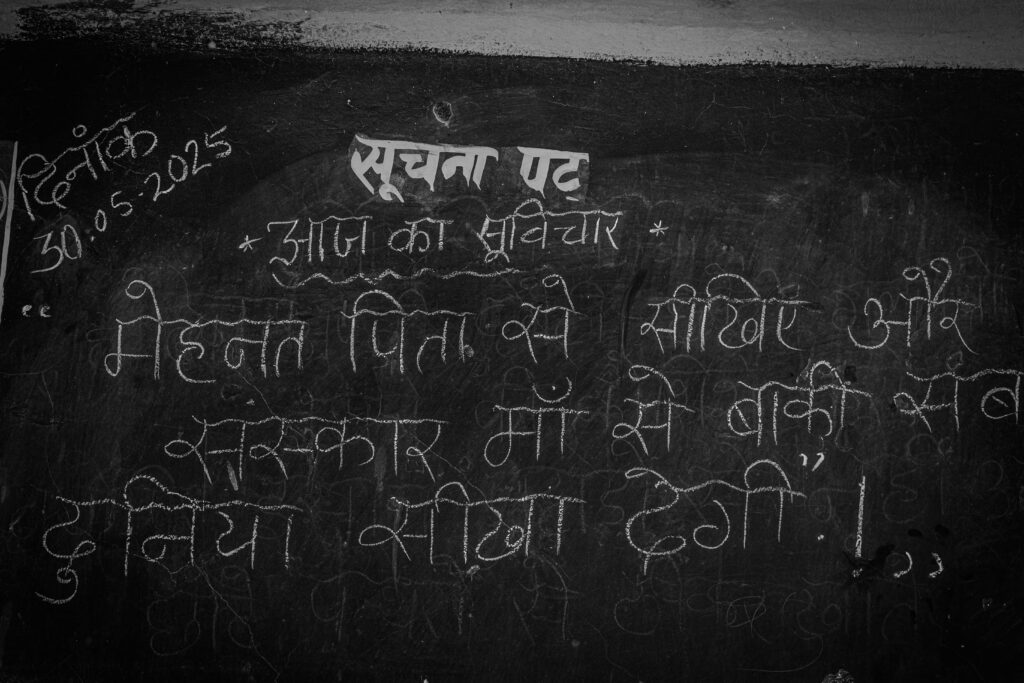 दिनांक
30.05.2025
सूचना पट
* आज का सुविचार *
“ मेहनत पिता से सीखिए और
सस्कार माँ से बाकी सब
दुनिया सीखा देगी ! ”